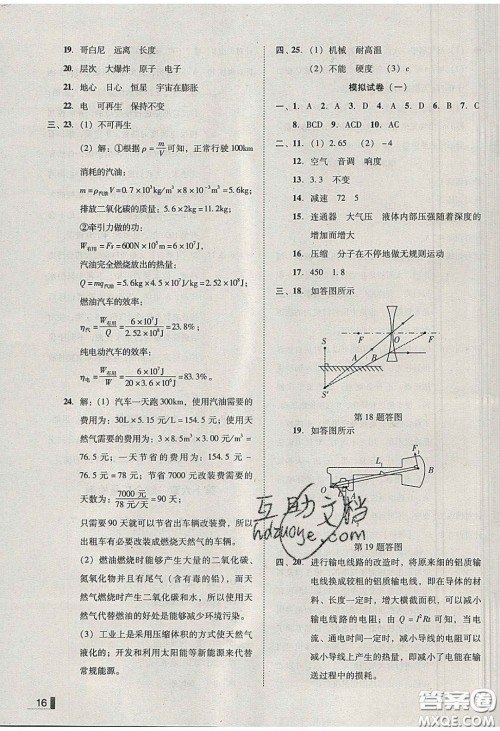 19. 哥白尼 远离 长度
20. 层次 大爆炸 原子 电子
21. 地心 日心 恒星 宇宙在膨胀
22. 电 可再生 保持不变
三、23. (1) 不可再生
(2) 解：①根据ρ=m/V可知，正常行驶100km
消耗的汽油：
m=ρ汽油V=0.7×10³kg/m³×8×10⁻³m³=5.6kg；
排放二氧化碳的质量：5.6×2kg=11.2kg。
②牵引力做的功：
W有用=Fs=600N×10⁵m=6×10⁷J，
汽油完全燃烧放出的热量：
Q=mq汽油=5.6kg×4.5×10⁷J/kg=25.2×10⁷J，
燃油汽车的效率：
η汽=W有用/Q=6×10⁷J/25.2×10⁷J=23.8%；
纯电动汽车的效率：
η电=W有用/W=6×10⁷J/20×3.6×10⁶J=83.3%。
24. 解：(1) 汽车一天跑300km，使用汽油需要的
费用为：30L×5.15元/L=154.5元；使用天
然气需要的费用为：3×8.5m³×3.00元/m³=
76.5元；使用天然气后每天节省费用：154.5元-
76.5元=78元；节省7000元改装费需要的
天数为：7000元/78元=90天；
只需要90天就可以节省出车辆改装费，所以
出租车有必要改装成天然气车。
(2) 燃油燃烧时能够产生大量的二氧化碳、
氮氧化物并且有尾气（含有毒的铅），而天
然气燃烧时产生二氧化碳和水，所以使用天
然气代替燃油的好处是能够减少环境污染。
(3) 工业上是采用压缩体积的方式使天然气
液化的；开发和利用太阳能等新能源来代替
常规能源。
16
四、25. (1) 机械 耐高温
(2) 不能 硬度 (3) c
模拟试卷（一）
一、1. A 2. D 3. A 4. D 5. A 6. D 7. C
8. BCD 9. ACD 10. AC
二、11. (1) 20 (2) 2.65 (2) -4
12. 空气 音调 响度
13. 3.3 不变
14. 减速 72 5
15. 连通器 大气压 液体内部压强随着深度的
增加而增大
16. 压缩 分子在不停地做无规则运动
17. 450 1.8
三、18. 如答图所示
S F O F A B S′
第18题答图
19. 如答图所示
F L B O A
第19题答图
四、20. 进行输电线路的改造时，将原来细的铝质输
电线换成较粗的铝质输电线，即在导体的材
料、长度一定时，增大横截面积，可以减小
输电线路的电阻；由Q=I²Rt可知，在电流和
通电时间一定时，减小导线的电阻可以减小
导线上产生的热量，即减小了电能在输
送过程中的损耗。
互助文档
hdzuoye.com
答案圈
MXQE.COM